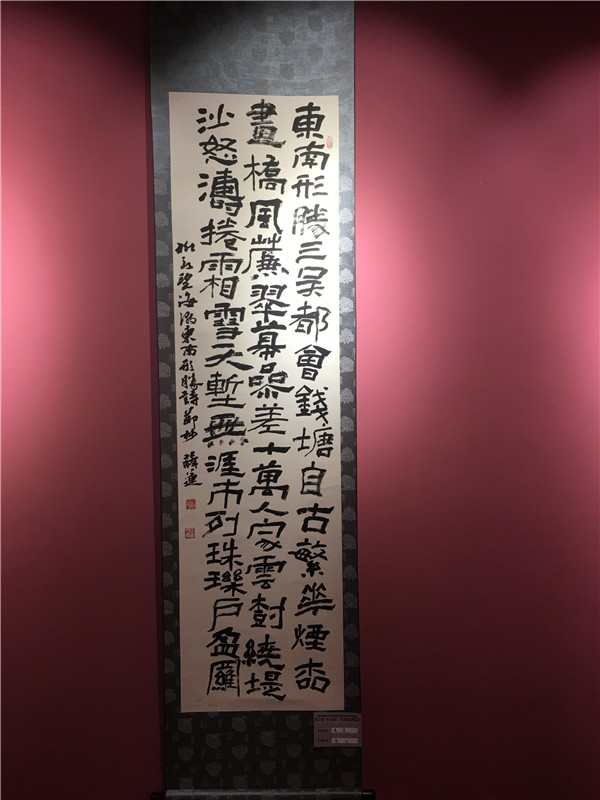 東南形勝三吳都會錢塘自古繁華煙柳
畫橋風簾翠幕參差十萬人家雲樹繞堤
沙怒濤捲霜雪天塹無涯市列珠璣戶盈羅
柳永望海潮東南形勝詩節抄